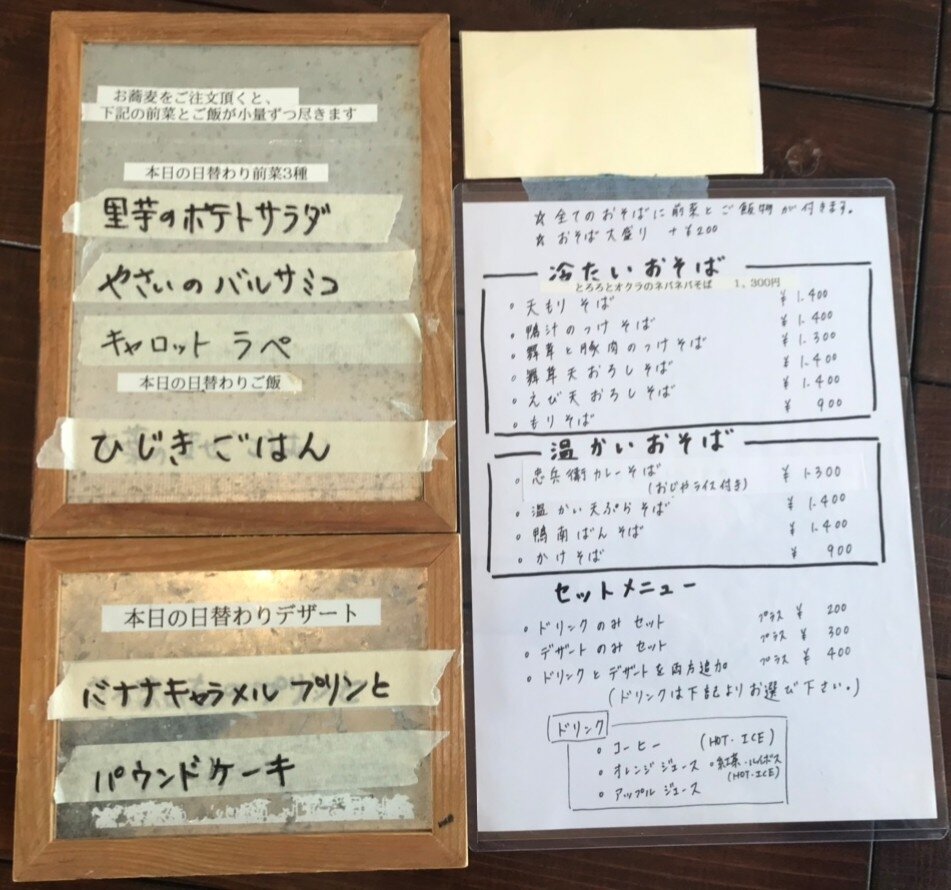 お蕎麦をご注文頂くと、
下記の前菜とご飯が小量ずつ尽きます
本日の日替わり前菜3種
里芋のポテトサラダ
やさいのバルサミコ
キャロットラペ
本日の日替わりご飯
ひじきごはん
本日の日替わりデザート
バナナキャラメルプリンと
パウンドケーキ
☆ 全てのおそばに前菜とご飯物が付きます。
☆ おそば大盛り +¥200
冷たいおそば
とろろとオクラのネバネバそば 1,300円
○ 天もりそば ¥1.400
○ 鴨汁のつけそば ¥1.400
○ 舞茸と豚肉のつけそば ¥1.300
○ 舞茸天おろしそば ¥1.400
○ えび天おろしそば ¥1.400
○ もりそば ¥900
温かいおそば
○ 忠兵衛カレーそば ¥1.300
(おじやライス付き)
○ 温かい天ぷらそば ¥1.400
○ 鴨南ばんそば ¥1.400
○ かけそば ¥900
セットメニュー
○ ドリンクのみセット プラス ¥200
○ デザートのみセット プラス ¥300
○ ドリンクとデザートを両方追加 プラス ¥400
(ドリンクは下記よりお選び下さい。)
ドリンク
○ コーヒー (HOT・ICE)
○ オレンジジュース ○紅茶・ルイボス
(HOT・ICE)
○ アップルジュース